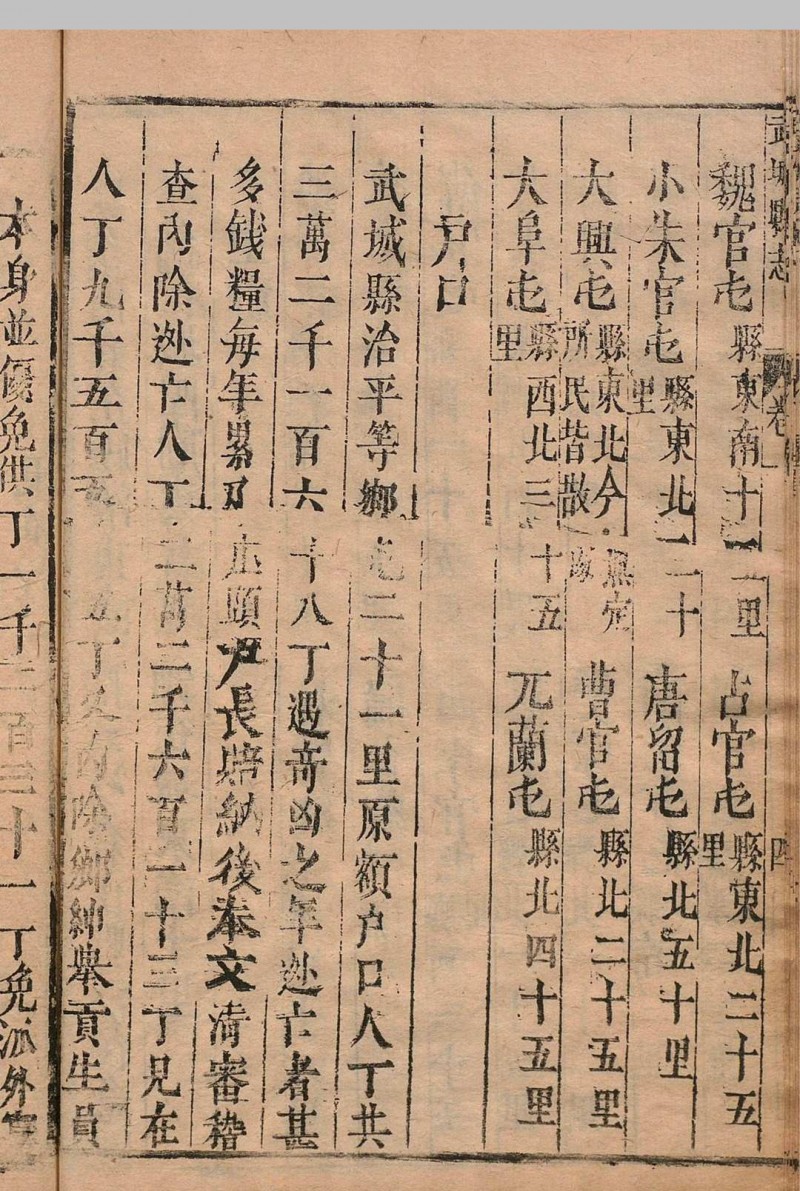 武城縣志 卷一 四
魏官屯縣東南十二里 占官屯縣東北二十五里
小朱官屯縣東北二十里 唐留屯縣北五十里
大興屯縣東北今無定所民皆散 曹官屯縣北二十五里
大阜屯縣西北三十五里 兀蘭屯縣北四十五里
戶口
武城縣治平等鄉屯二十一里原額户口人丁共
三萬二千一百六十八丁遇竒凶之年迯亡者甚
多錢糧每年累及頭户長賠納後奉文清審稽
查内除迯亡人丁二萬二千六百一十三丁見在
人丁九千五百五丁内除鄉紳舉貢生員
本身並優免供丁一千三百三十一丁免派外